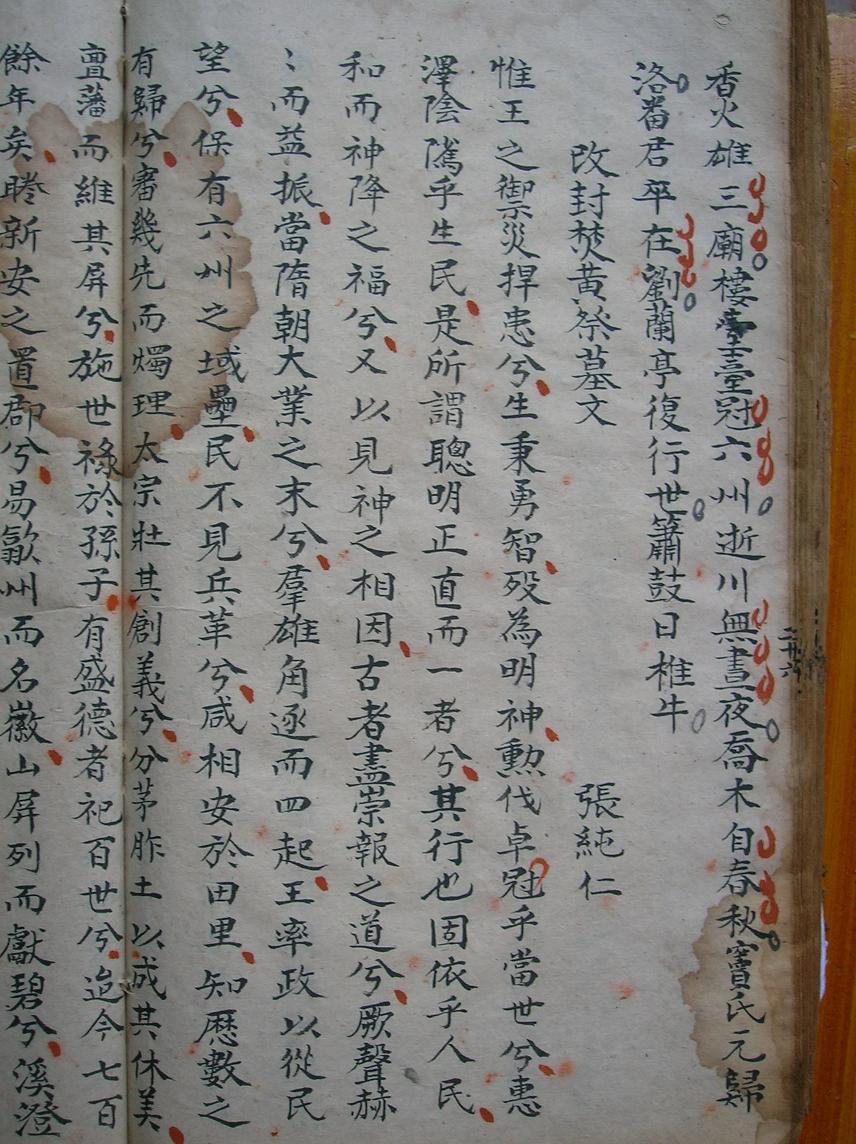 香火雄三廟樓臺冠六州逝川無晝夜喬木自春秋竇氏元歸
洛番君卒在劉蘭亭復行世簫鼓日椎牛
改封焚黃祭墓文
張純仁
惟王之禦災捍患兮生秉勇智歿為明神勲伐卓冠乎當世兮惠
澤陰隲乎生民是所謂聰明正直而一者兮其行也固依乎人民
和而神降之福兮又以見神之相因古者盡崇報之道兮厥聲赫
〻而益振當隋朝大業之末兮羣雄角逐而四起王率政以從民
望兮保有六州之域壘民不見兵革兮咸相安於田里知歷數之
有歸兮審幾先而燭理太宗壯其創義兮分茅胙土以成其休美
亶藩而維其屏兮施世祿於孫子有盛德者祀百世兮迨今七百
餘年矣睠新安之置郡兮易歙州而名徽山屏列而獻碧兮溪澄